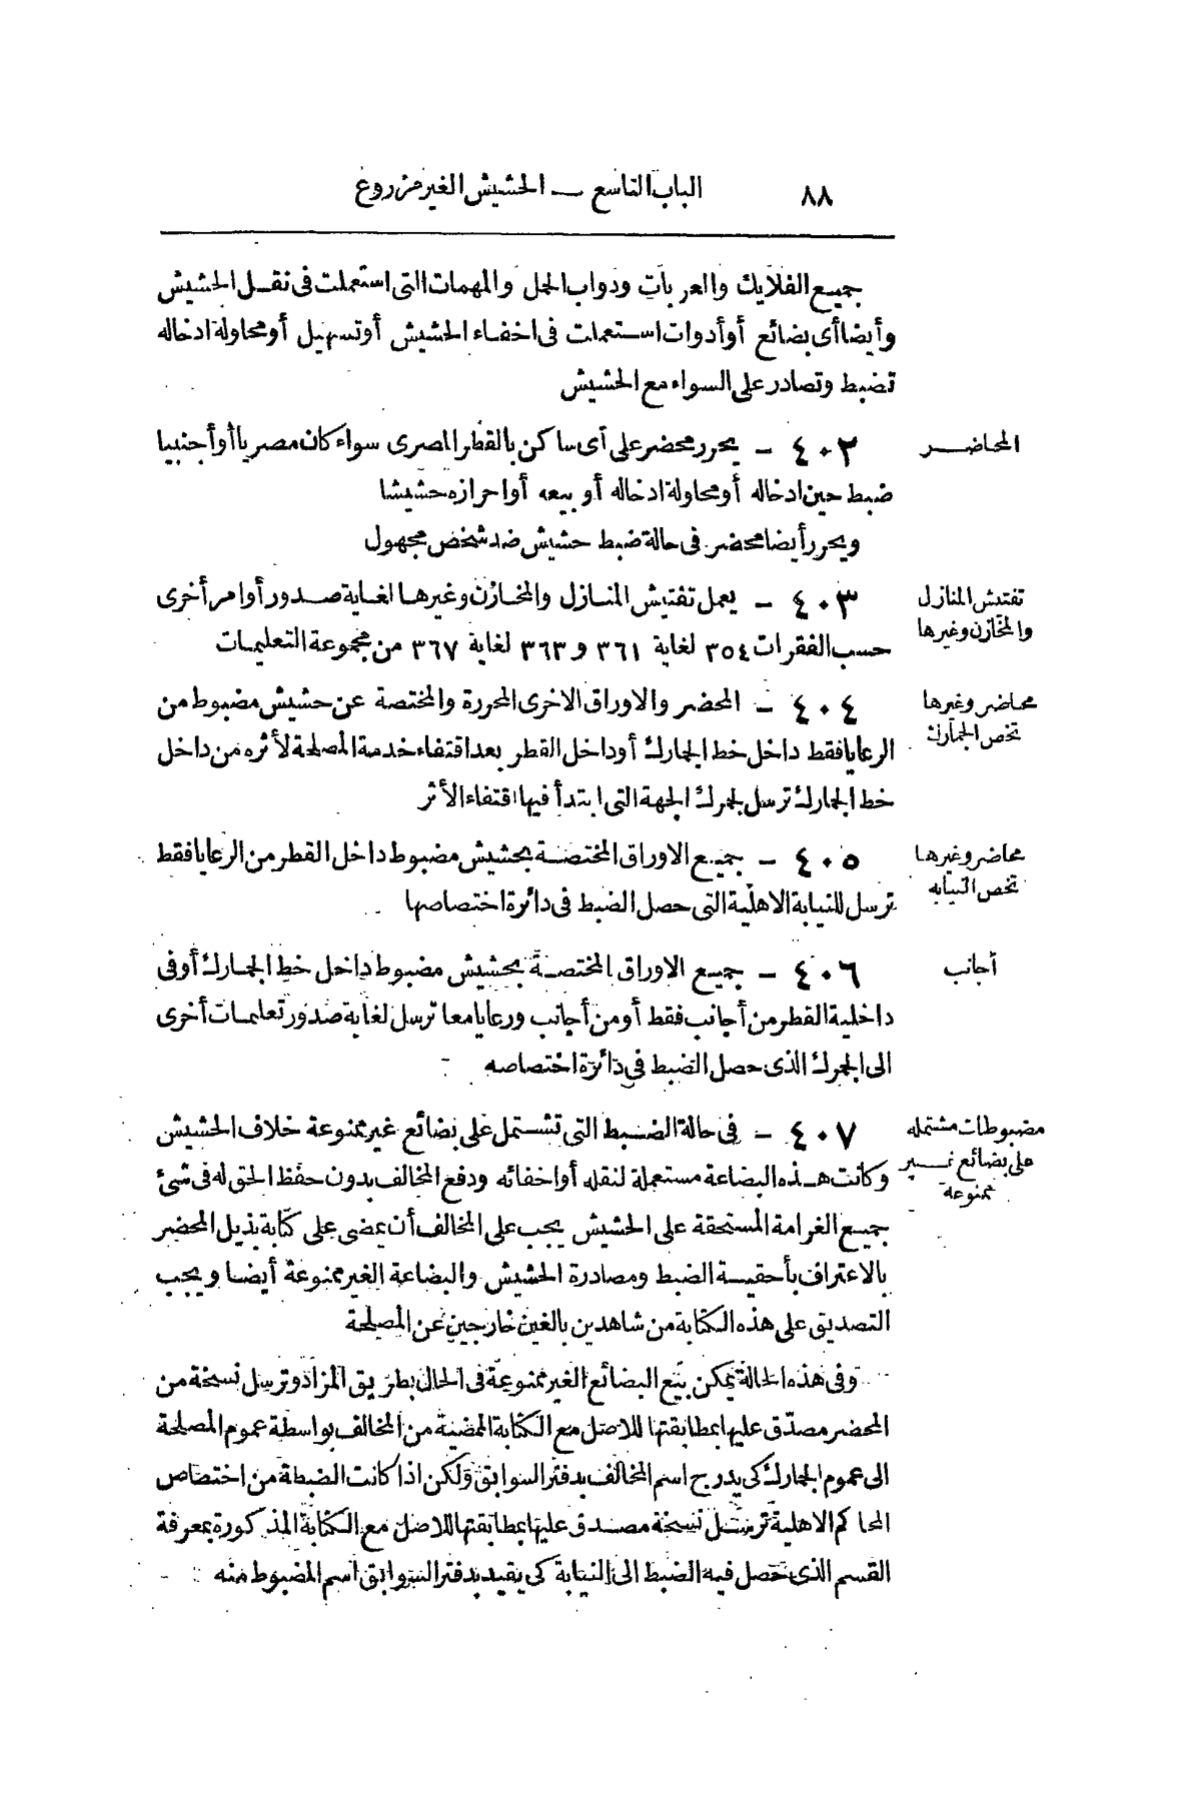 ٨٨
الباب التاسع — الحشيش الغير مزروع
جميع الفلايك والعربات ودواب الحمل والمهمات التى استعملت فى نقل الحشيش
وأيضا أى بضائع أو أدوات استعملت فى اخفاء الحشيش أو تسهيل أو محاولة ادخاله
تضبط وتصادر على السواء مع الحشيش
المحاضر
٤٠٢ - يحرر محضر على أى ساكن بالقطر المصرى سواء كان مصريا أو أجنبيا
ضبط حين ادخاله أو محاولة ادخاله أو بيعه أو احرازه حشيشا
ويحرر أيضا محضر فى حالة ضبط حشيش ضد شخص مجهول
تفتيش المنازل
والمخازن وغيرها
٤٠٣ - يعمل تفتيش المنازل والمخازن وغيرها لغاية صدور أوامر أخرى
حسب الفقرات ٣٥٤ لغاية ٣٦١ و ٣٦٣ لغاية ٣٦٧ من مجموعة التعليمات
محاضر وغيرها
تخص الجمارك
٤٠٤ - المحضر والاوراق الاخرى المحررة والمختصة عن حشيش مضبوط من
الرعايا فقط داخل خط الجمارك أو داخل القطر بعد اقتفاء خدمة المصلحة لأثره من داخل
خط الجمارك ترسل لجمرك الجهة التى ابتدأ فيها اقتفاء الأثر
محاضر وغيرها
تخص النيابه
٤٠٥ - جميع الاوراق المختصة بحشيش مضبوط داخل القطر من الرعايا فقط
ترسل للنيابة الاهلية التى حصل الضبط فى دائرة اختصاصها
أجانب
٤٠٦ - جميع الاوراق المختصة بحشيش مضبوط داخل خط الجمارك أو فى
داخلية القطر من أجانب فقط أو من أجانب ورعايا معا ترسل لغاية صدور تعليمات أخرى
الى الجمرك الذى حصل الضبط فى دائرة اختصاصه
مضبوطات مشتمله
على بضائع غير
ممنوعة
٤٠٧ - فى حالة الضبط التى تشتمل على بضائع غير ممنوعة خلاف الحشيش
وكانت هذه البضاعة مستعملة لنقله أو اخفائه ودفع المخالف بدون حفظ الحق له فى شئ
جميع الغرامة المستحقة على الحشيش يجب على المخالف أن يمضى على كتابة بذيل المحضر
بالاعتراف بأحقية الضبط ومصادرة الحشيش والبضاعة الغير ممنوعة أيضا ويجب
التصديق على هذه الكتابة من شاهدين بالغين خارجين عن المصلحة
وفى هذه الحالة يمكن بيع البضائع الغير ممنوعة فى الحال بطريق المزاد وترسل نسخة من
المحضر مصدق عليها بمطابقتها للاصل مع الكتابة الممضية من المخالف بواسطة عموم المصلحة
الى عموم الجمارك كى يدرج اسم المخالف بدفتر السوابق ولكن اذا كانت الضبطة من اختصاص
المحاكم الاهلية ترسل نسخة مصدق عليها بمطابقتها للاصل مع الكتابة المذكورة بمعرفة
القسم الذى حصل فيه الضبط الى النيابة كى يقيد بدفتر السوابق اسم المضبوط منه